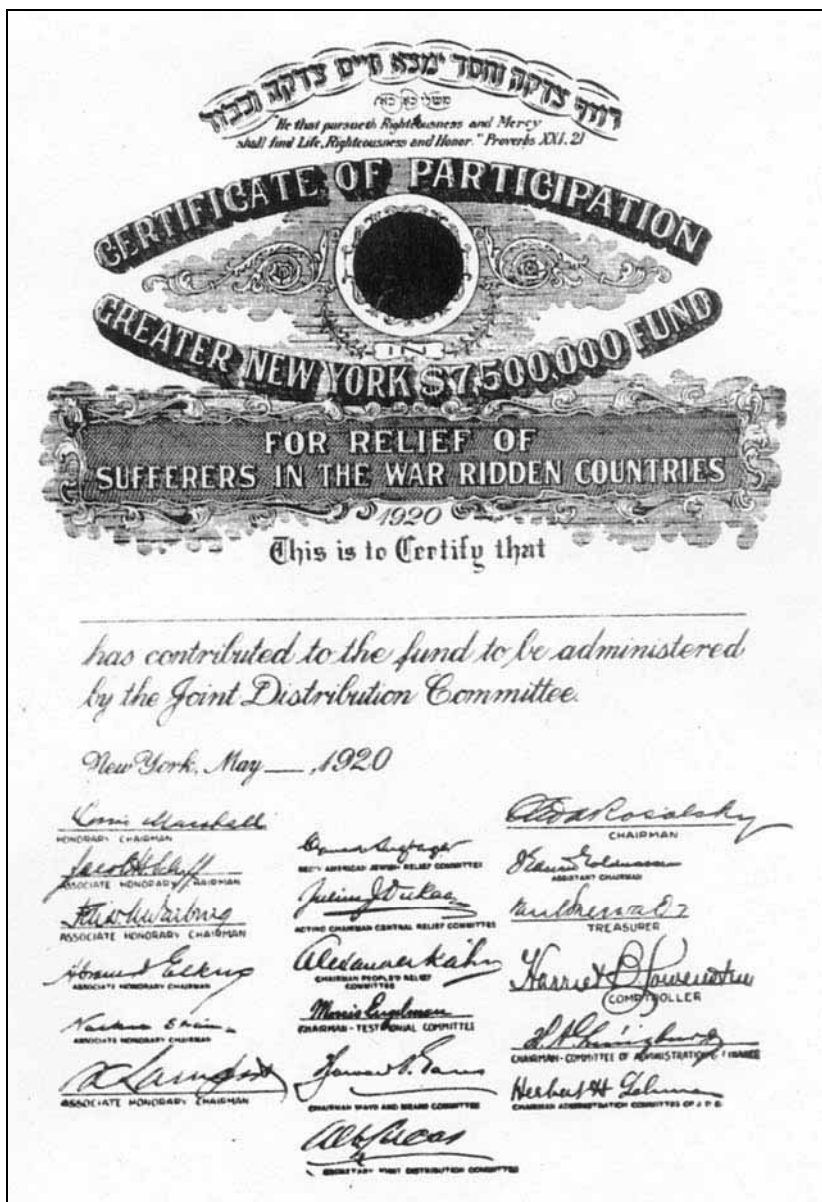 רודף צדקה וחסד ימצא חיים צדקה וכבוד
משלי כא כא
"He that pursueth Righteousness and Mercy
shall find Life, Righteousness and Honor." Proverbs XXI. 21
CERTIFICATE OF PARTICIPATION
IN
GREATER NEW YORK $7,500,000 FUND
FOR RELIEF OF
SUFFERERS IN THE WAR RIDDEN COUNTRIES
1920
This is to Certify that
has contributed to the fund to be administered
by the Joint Distribution Committee.
New York, May ___, 1920
Louis Marshall
HONORARY CHAIRMAN
Jacob H Schiff
ASSOCIATE HONORARY CHAIRMAN
Felix M Warburg
ASSOCIATE HONORARY CHAIRMAN
Elkus
ASSOCIATE HONORARY CHAIRMAN
Nathan Straus
ASSOCIATE HONORARY CHAIRMAN
ASSOCIATE HONORARY CHAIRMAN
SEC'Y AMERICAN JEWISH RELIEF COMMITTEE
Julius J Dukas
ACTING CHAIRMAN CENTRAL RELIEF COMMITTEE
Alexander Kahn
CHAIRMAN PEOPLE'S RELIEF
COMMITTEE
Morris Engelman
CHAIRMAN - TESTIMONIAL COMMITTEE
CHAIRMAN COMMITTEE
Alb Lucas
SECRETARY JOINT DISTRIBUTION COMMITTEE
Otto A Rosalsky
CHAIRMAN
ASSISTANT CHAIRMAN
TREASURER
Harriet B. Lowenstein
COMPTROLLER
CHAIRMAN - COMMITTEE OF ADMINISTRATION & FINANCE
Herbert H Lehman
CHAIRMAN ADMINISTRATION COMMITTEE OF J. D. C.